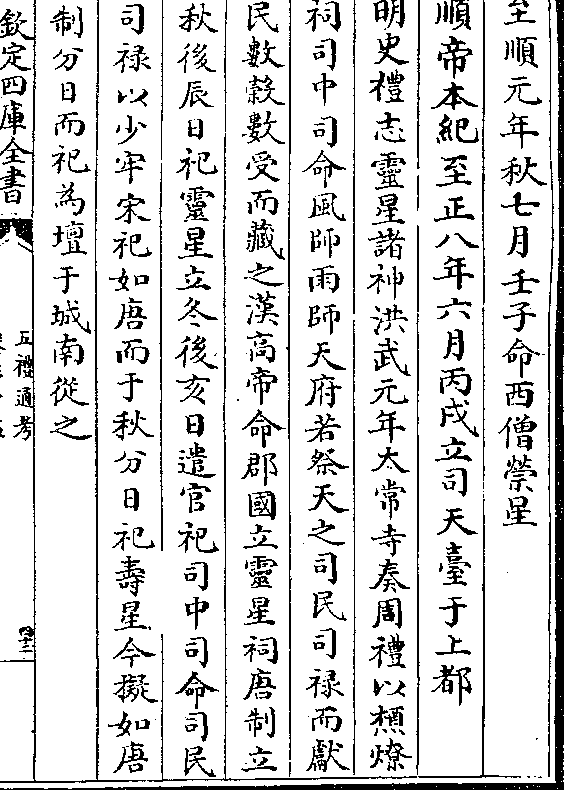 至順元年秋七月壬子命西僧禜星
順帝本紀至正八年六月丙戌立司天臺于上都
明史禮志靈星諸神洪武元年太常寺奏周禮以槱燎
祠司中司命風師雨師天府若祭天之司民司祿而獻
民數穀數受而藏之漢高帝命郡國立靈星祠唐制立
秋後辰日祀靈星立冬後亥日遣官祀司中司命司民
司禄以少牢宋祀如唐而于秋分日祀壽星今擬如唐
制分日而祀為壇于城南從之
欽定四庫全書
五禮通考